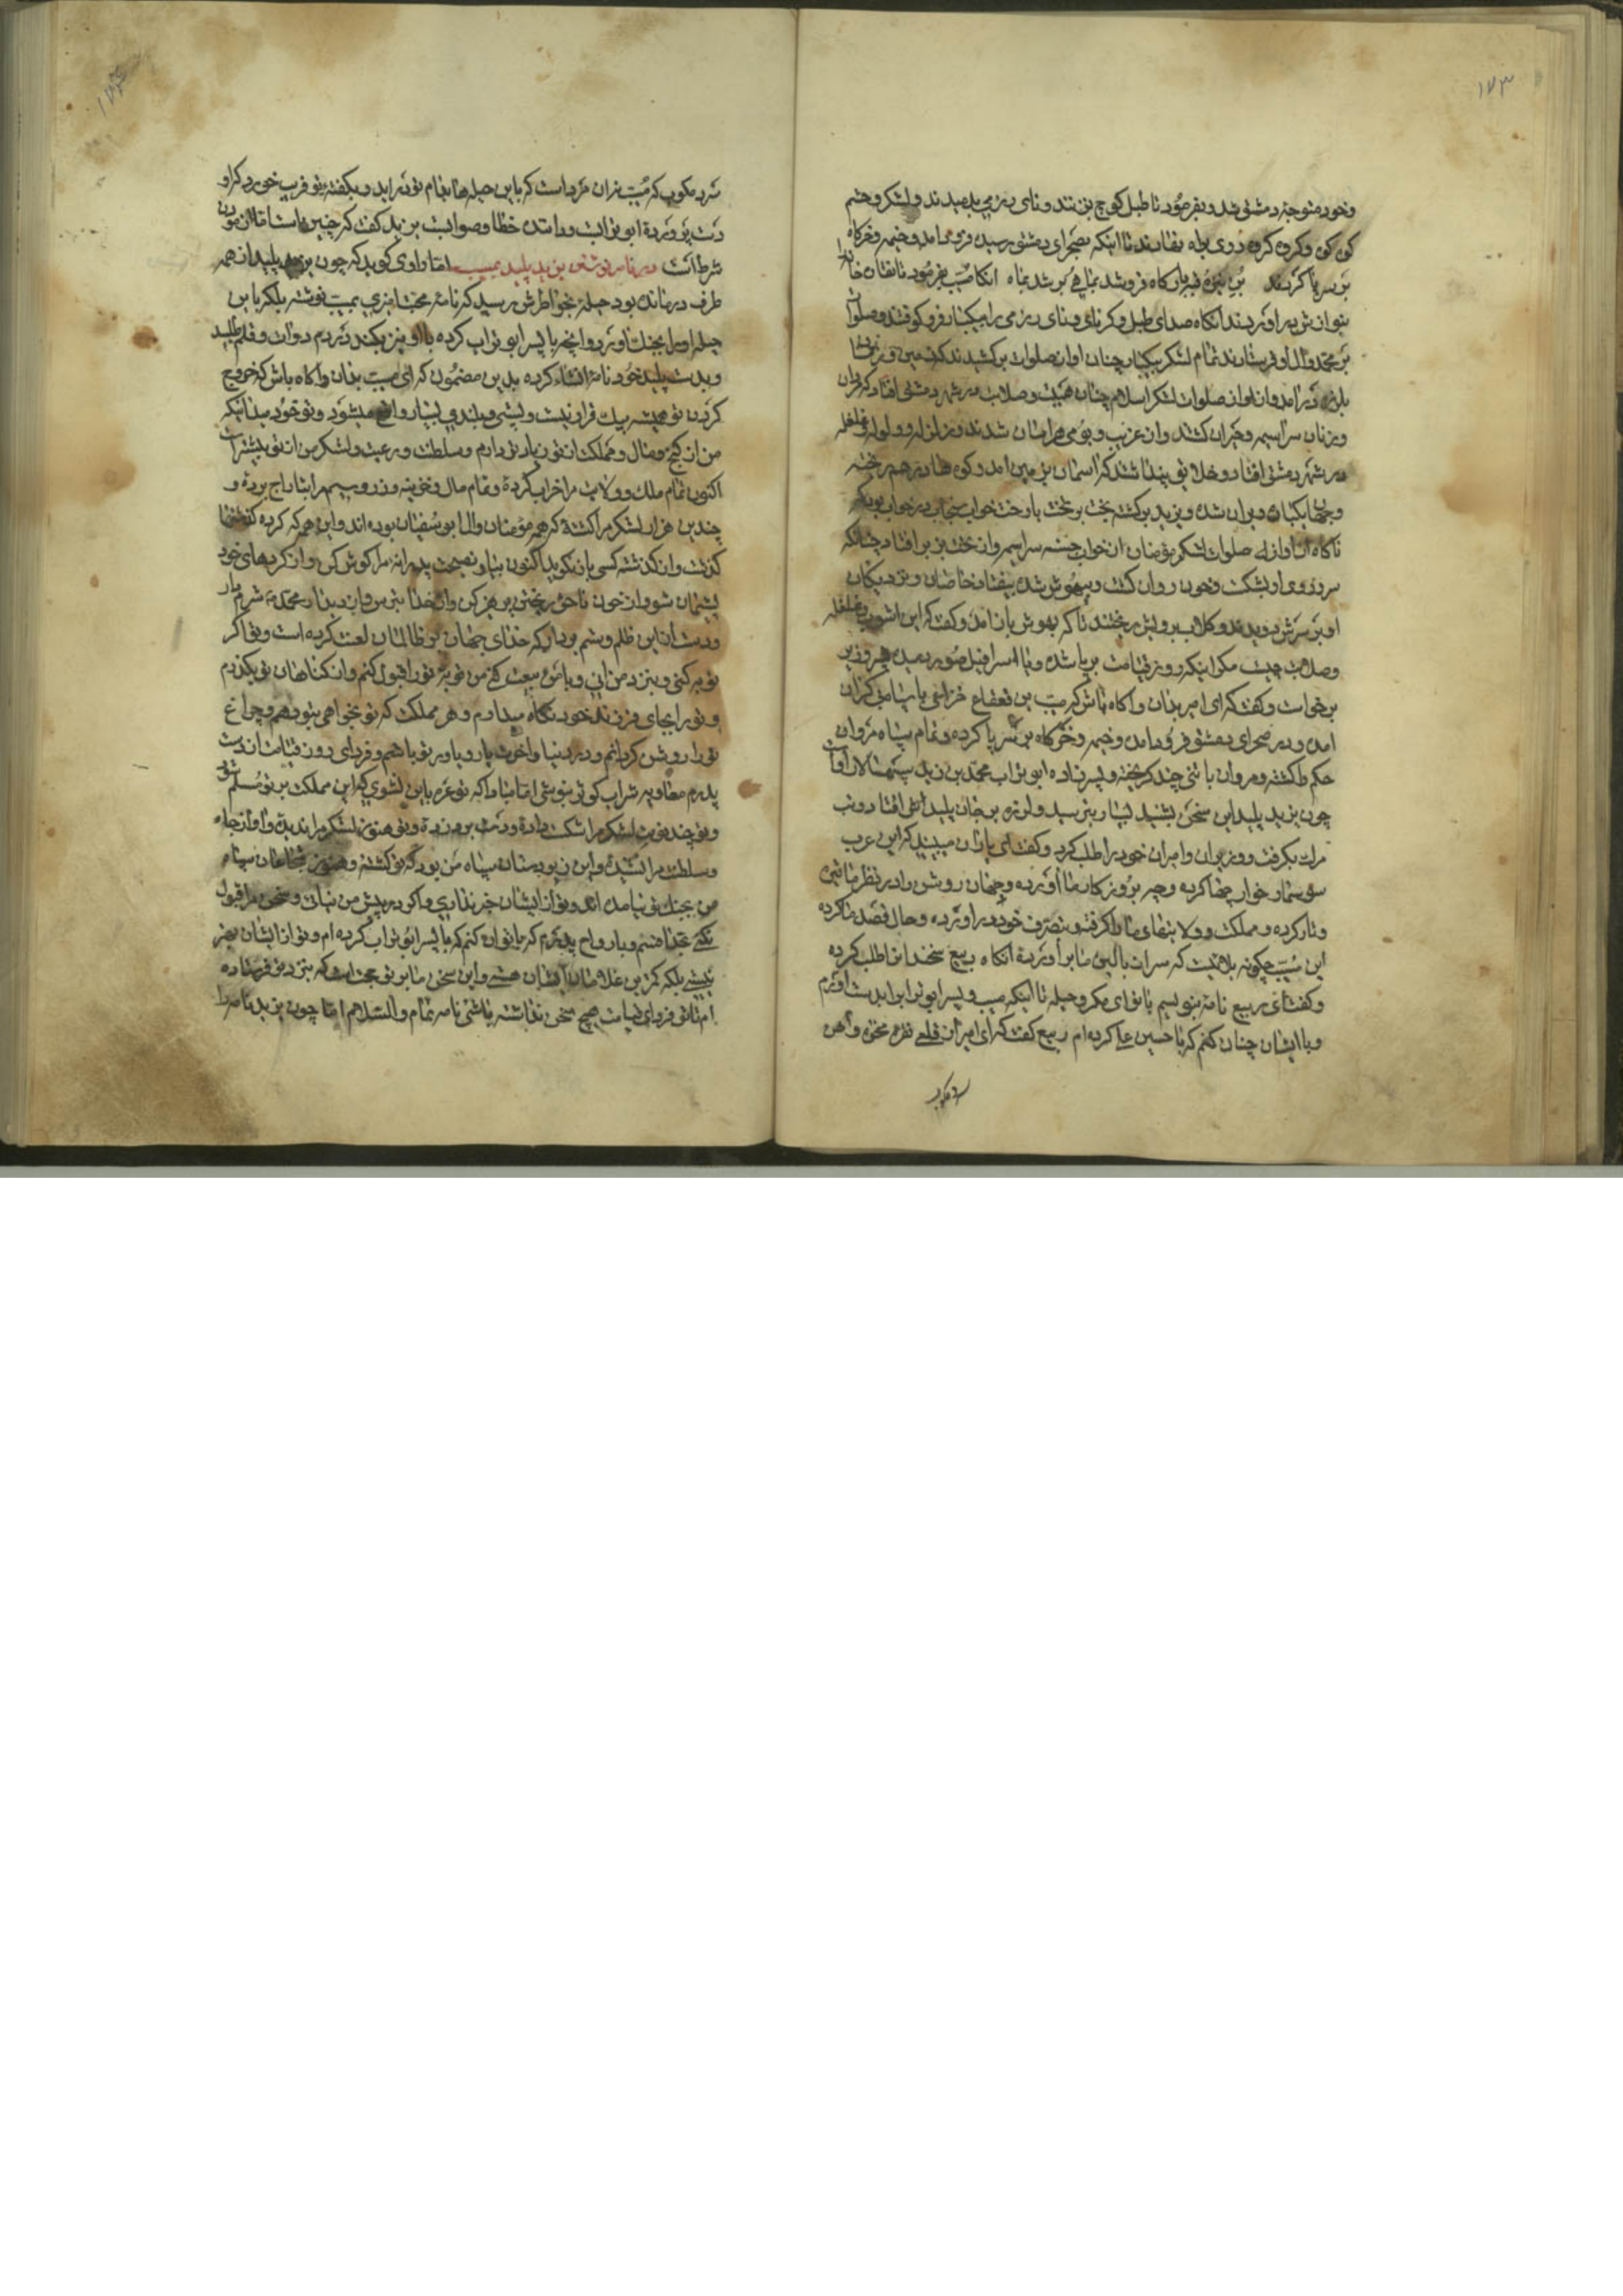 ۱۷۳
وخود متوجه دمشق شد و بفرمود تا طبل کوچ بزنند و نای رزمی بدمیدند و لشکر و حشم
کوه کوه و کروه کروه روی براه نهادند تا اینکه بصحرای دمشق رسیده فرود امد و خیمه و خرکاه
بر سر پا کردند بن نیزه قبه بارکاه فرو شد بماهی بر شد بماه انکاه مسیب بفرمود تا نقاره خانه را
بنوازش در اوردند انکاه صدای طبل و کرنای و نای رزمی را بیکبار فرو کوفتند و صلوات
بر محمد و ال او فرستادند تمام لشکر بیکبار چنان اواز صلوات برکشیدند که زمین و زمان
بلرزه درامد و از اواز صلوات لشکر اسلام چنان هیبت و صلابت در شهر دمشق افتاد که مردان
و زنان سراسیمه و حیران کشتند و از غریب و بومی هراسان شدند و زلزله و ولوله و غلغله
در شهر دمشق افتاد و خلایق پنداشتند که اسمان بزمین امد و کوه ها درهم ریخته
و جهان یکباره ویران شده و یزید برکشته بخت بر تخت با رخت خواب در خواب بود که
ناکاه از اوازه صلوات لشکر مؤمنان از خواب جسته سراسیمه و از تخت بزیر افتاد چنانکه
سر و روی او بشکست و خون روان کشت و بیهوش شده بیفتاد خاصان و نزدیکان
او بر سرش دویدند و کلاب بر ویش ریختند تا که بهوش باز امد و کفت که این اشوب و غلغله
و صلابت چیست مکر اینکه روز قیامت برپا شده و یا اسرافیل صور دمیده وزیر
برخواست و کفت که ای امیر بدان و اکاه باش که مسیب بن قعقاع خزاعی با سپاهی کران
امده و در صحرای دمشق فرود امده و خیمه و خرکاه بر سر پا کرده و تمام سپاه مروان
حکم را کشته و مروان با تنی چند کریخته و پسر زاده ابو تراب محمد بن زید سپهسالار اوست
چون یزید پلید این سخن بشنید بسیار بترسید و لرزه بر جان پلیدش افتاد و تب
مرک بکرفت و وزیران و امیران خود را طلب کرد و کفت ای یاران میبینید که این عرب
سوسمار خوار چها کرده و چه بروزکار ما اورده و جهان روشن را در نظر ما تیره
و تار کرده و مملکت و ولایتهای ما را کرفته و بتصرف خود در اورده و حال قصد ما کرده
این مسیب چکونه بلائیست که سر از بالین ما بر اورده انکاه ربیع سخندان را طلب کرده
و کفت ای ربیع نامه بنویسم با نوای مکر و حیله تا اینکه مسیب و پسر ابو تراب را بدست اورم
و با ایشان چنان کنم که با حسین علی کرده ام ربیع کفت که ای امیر از قلعی نقره نخیزد و اهن
سرد مکوب
سرد مکوب که مسیب نه ان مرد است که باین حیله ها بدام تو در اید و بکفته تو فریب خورد که او
دست پرورده ابو تراب است و داننده خطا و صوابست یزید کفت که چنین است اما از مودن
شرط است در نامه نوشتن یزید پلید بمسیب اما راوی کوید که چون یزید پلید از همه
طرف درمانده بود حیله بخواطرش رسید که نامه محبت امیزی بمسیب نوشته بلکه باین
حیله او را بچنک اورد و انچه با پسر ابو تراب کرده با او نیز بکند در دم دوات و قلم طلبید
و بدست پلید خود نامه انشاء کرده بدین مضمون که ای مسیب بدان و اکاه باش که خروج
کردن تو همیشه بیک قرار نیست و پستی و بلندی بسیار واقع میشود و تو خود میدانیکه
من از کنج و مال و مملکت از تو زیادتی دارم و سلطنت و رعیت و لشکر من از تو بیشتر است
اکنون تمام ملک و ولایت مرا خراب کرده و تمام مال و خزینه و زر و سیم مرا بتاراج برده و
چندین هزار لشکر مرا کشته که همه مؤمنان و ال ابو سفیان بوده اند و این همه که کرده کذشتها
کذشت و از کذشته کسی باز نکوید اکنون بیا و نصیحت پدرانه مرا کوش کن و از کردهای خود
پشیمان شو و از خون ناحق ریختن پرهیز کن و از خدا بترس و از دیدار محمد شرم دار
و دست از این ظلم و ستم بردار که خدای جهان بر ظالمان لعنت کرده است و تو اکر
توبه کنی و بنزد من ائی و با من بیعت کنی من توبه تو را قبول کنم و از کناهان تو بکذرم
و تو را بجای فرزند خود نکاه میدارم و هر مملکت که تو بخواهی بتو دهم و چراغ
تو را روشن کردانم و در دنیا و اخرت یار و یاور تو باشم و فردای روز قیامت از دست
پدرم معاویه شراب کوثر بنوشی اما مبادا که تو غره باین نشوی که این مملکت بر تو مسلم شود
و تو چند نوبت لشکر مرا شکست داده و دست برد زده و تو هنوز لشکر مرا ندیده و اوازه جاه
و سلطنت مرا نشنیده و این زبون سپاه من بود که تو کشته و هنوز شجاعان سپاه
من بجنک تو نیامده اند و تو از ایشان خبر نداری و اکر در پیش من نیائی و سخن مرا قبول
نکنی بخدا قسم و بارواح پدرم که با تو ان کنم که با پسر ابو تراب کرده ام و تو از ایشان بهتر
نیستی بلکه کمترین غلامان ایشان هستی و این سخن ما بر تو حجت است که بنزد تو فرستاده
ام تا تو فردای قیامت هیچ سخن نداشته باشی نامه تمام و السلام اما چون یزید نامه را